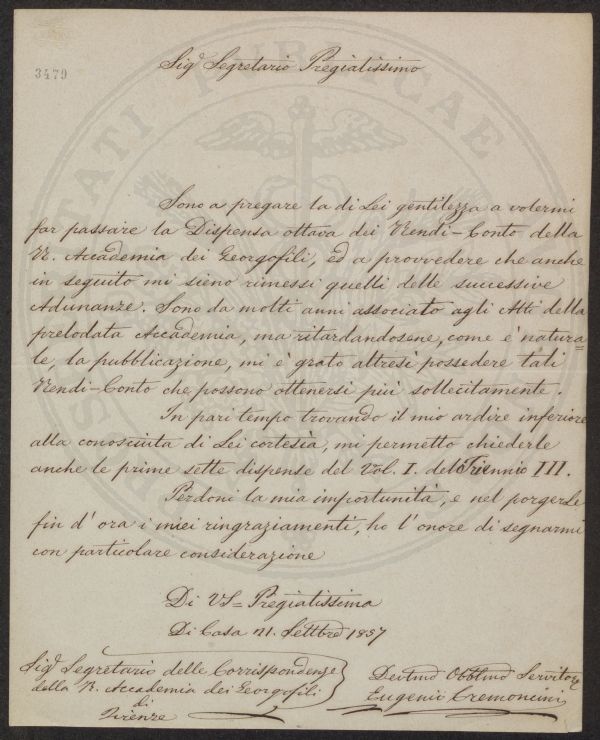 3479
Sigr. Segretario Pregiatissimo
Sono a pregare la di Lei gentilezza a volermi
far passare la Dispensa ottava dei Rendi-Conto della
R. Accademia dei Georgofili, ed a provvedere che anche
in seguito mi sieno rimessi quelli delle successive
Adunanze. Sono da molti anni associato agli Atti della
prelodata Accademia, ma ritardandosene, come è natura=
le, la pubblicazione, mi è grato altresì possedere tali
Rendi-Conto che possono ottenersi più sollecitamente.
In pari tempo trovando il mio ardire inferiore
alla conosciuta di Lei cortesìa, mi permetto chiederle
anche le prime sette dispense del Vol. I. del Triennio III.
Perdoni la mia importunità, e nel porgerle
fin d'ora i miei ringraziamenti, ho l'onore di segnarmi
con particolare considerazione
Di VS= Pregiatissima
Di Casa 21. Settbre 1857
Sigr. Segretario delle Corrispondenze
della R. Accademia dei Georgofili
di
Firenze
Devtmo Obbtmo Servitore
Eugenio Cremoncini